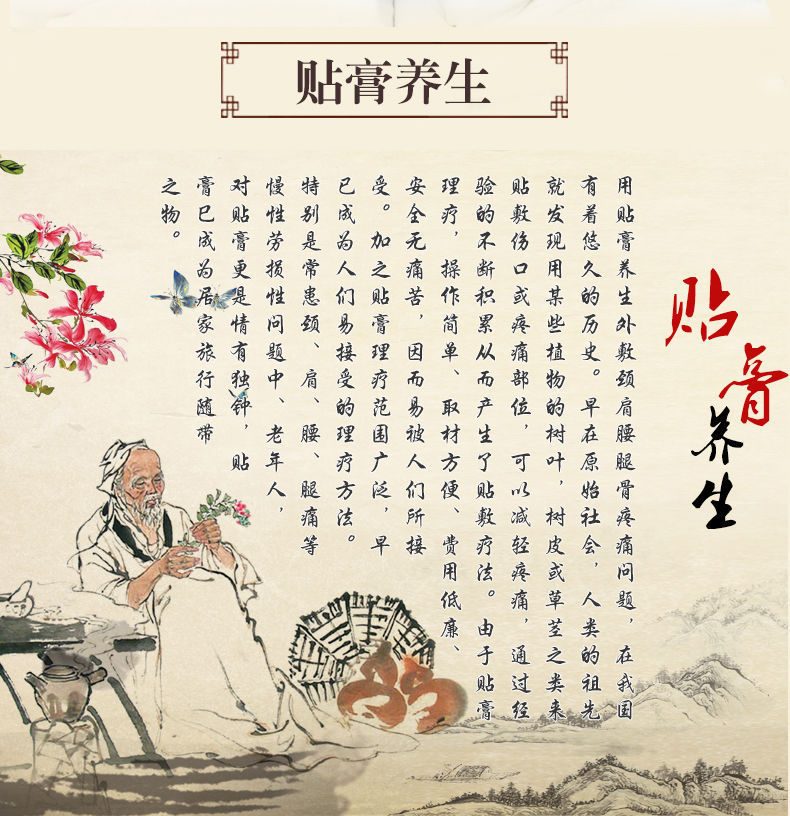 贴膏养生
贴膏养生
用贴膏养生外敷颈肩腰腿骨疼痛问题，在我国
有着悠久的历史。早在原始社会，人类的祖先
就发现用某些植物的树叶，树皮或草茎之类来
贴敷伤口或疼痛部位，可以减轻疼痛，通过经
验的不断积累从而产生了贴敷疗法。由于贴膏
理疗，操作简单、取材方便、费用低廉、
安全无痛苦，因而易被人们所接
受。加之贴膏理疗范围广泛，早
已成为人们易接受的理疗方法。
特别是常患颈、肩、腰、腿痛等
慢性劳损性问题中、老年人，
对贴膏更是情有独钟，贴
膏已成为居家旅行随带
之物。